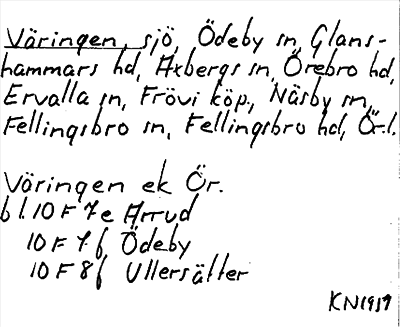 Väringen, sjö, Ödeby sn, Glans-
hammars hd, Axbergs sn, Örebro hd,
Ervalla sn, Frövi köp., Näsby sn,
Fellingsbro sn, Fellingsbro hd, Ör.l.
Väringen ek Ör.
bl. 10 F 7e Arrud
10 F 7f Ödeby
10 F 8f Ullersätter
KN1959